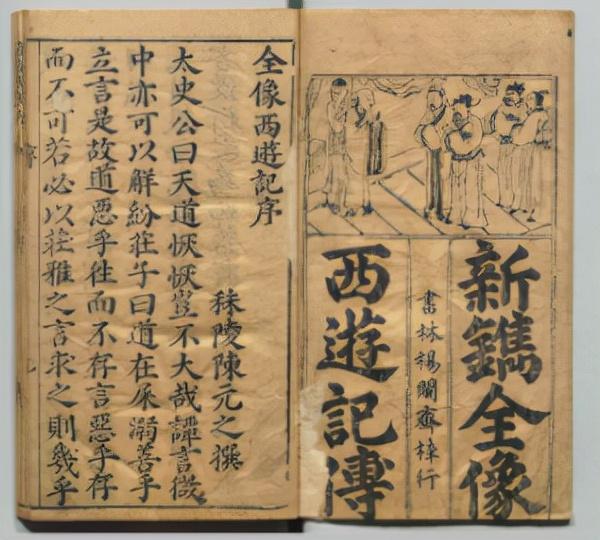 新鐫全像
書林楊閩齋梓行
西遊記傳
全像西遊記序
秣陵陳元之撰
太史公曰天道恢恢豈不大哉譚言微
中亦可以解紛莊子曰道在屎溺善乎
立言是故道惡乎往而不存言惡乎存
而不可若必以莊雅之言求之則幾乎